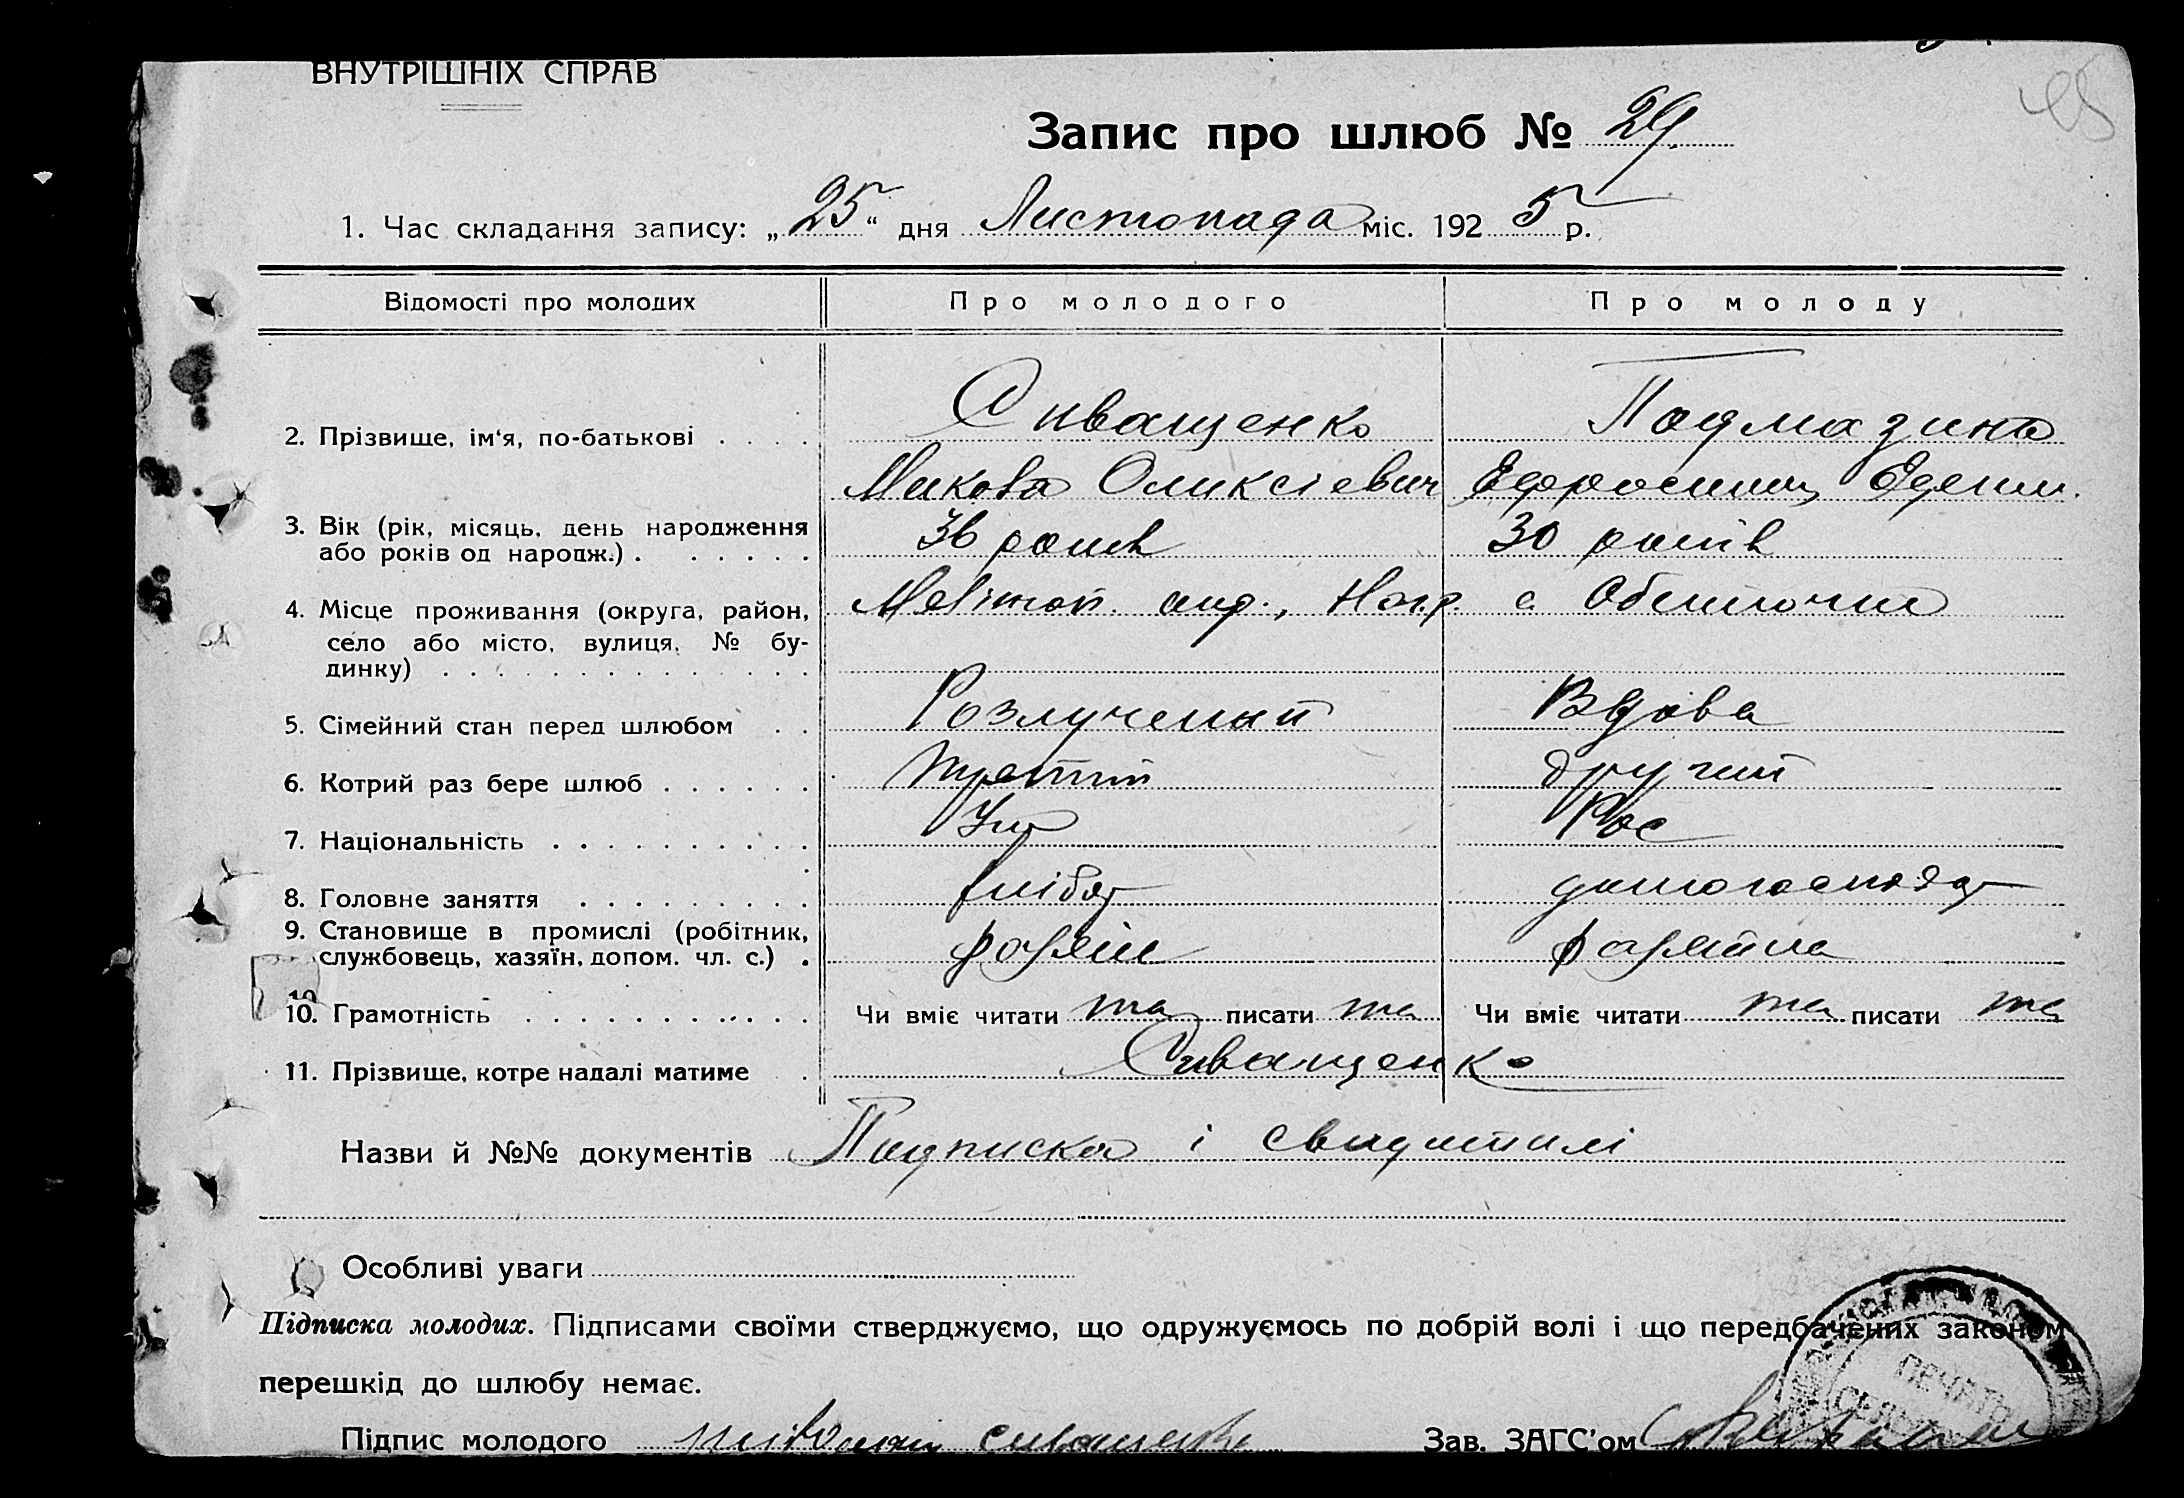 ВНУТРІШНІХ СПРАВ
45
Запис про шлюб № 29
1. Час складання запису: „25“ дня Листопада міс. 1925 р.
Відомості про молодих Про молодого Про молоду
2. Прізвище, ім‘я, по-батькові . . . . Сиващенко
Микова Оликсіевич
3. Вік (рік, місяць, день народження
або років од народж.) . . . . . . 36 30 років
4. Місце проживання (округа, район, с. Обиточна
село або місто, вулиця, № бу-
динку) . . . . . . . . . . . . .
5. Сімейний стан перед шлюбом . . Розлучений Вдова
6. Котрий раз бере шлюб . . . . . . третій другий
7. Національність . . . . . . . . . . Укр Рос
8. Головне заняття . . . . . . . . . хлібор домогоспод
9. Становище в промислі (робітник,
службовець, хазяїн, допом. чл. с.) .
10. Грамотність . . . . . . . . . . . Чи вміє читати та писати та Чи вміє читати та писати та
11. Прізвище, котре надалі матиме . Сиващенко
Назви й №№ документів Пидписка і свидитилі
Особливі уваги
Підписка молодих. Підписами своїми стверджуємо, що одружуємось по добрій волі і що передбачених законом
перешкід до шлюбу немає.
Підпис молодого сиващенко Зав. ЗАГС'ом
ПЕЧАТЬ